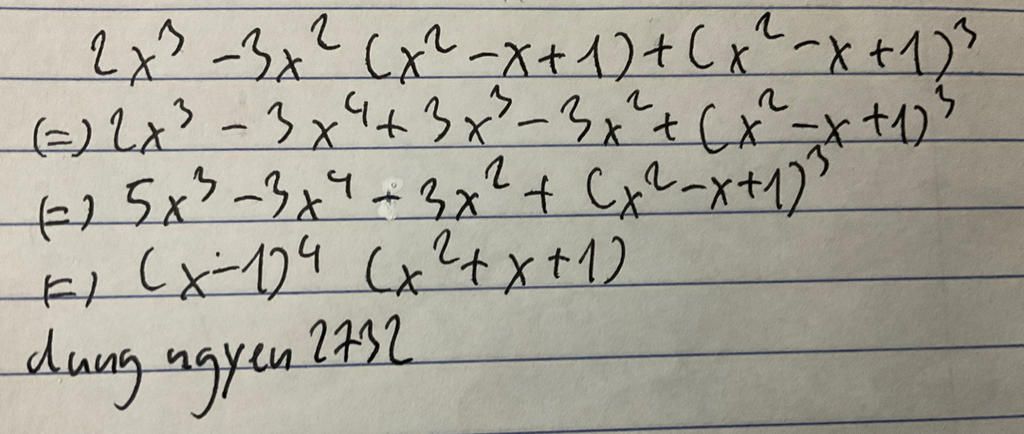 2x³ - 3x² (x² - x + 1) + (x² - x + 1)³
(=) 2x³ - 3x⁴ + 3x³ - 3x² + (x² - x + 1)³
(=) 5x³ - 3x⁴ - 3x² + (x² - x + 1)³
(=) (x - 1)⁴ (x² + x + 1)
dung ngyen 2732